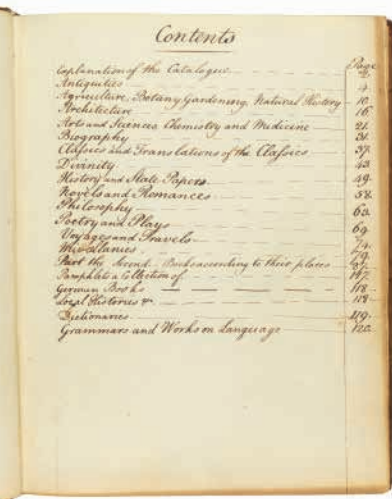 Contents
Page
Explanation of the Catalogue 2
Antiquities 4
Agriculture, Botany Gardening, Natural History 10
Architecture 16
Arts and Sciences Chemistry and Medicine 21
Biography 31
Classics and Translations of the Classics 37
Divinity 43
History and State Papers 49
Novels and Romances 58
Philosophy 63
Poetry and Plays 69
Voyages and Travels 74
Miscellanies 79
Part the Second. Books according to their places
Pamphlets a Collection of
German Books 118
Local Histories &c 118
Dictionaries 119
Grammars and Works on Language 120